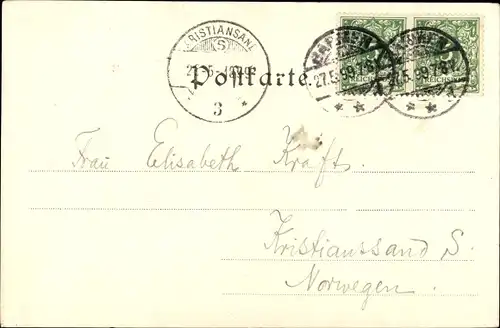 KRISTIANSAND
S
3
Postkarte
27.5.99.7-8V.
27.5.99.7-8V.
Frau Elisabeth Krafts.
Kristianssand S.
Norwegen.